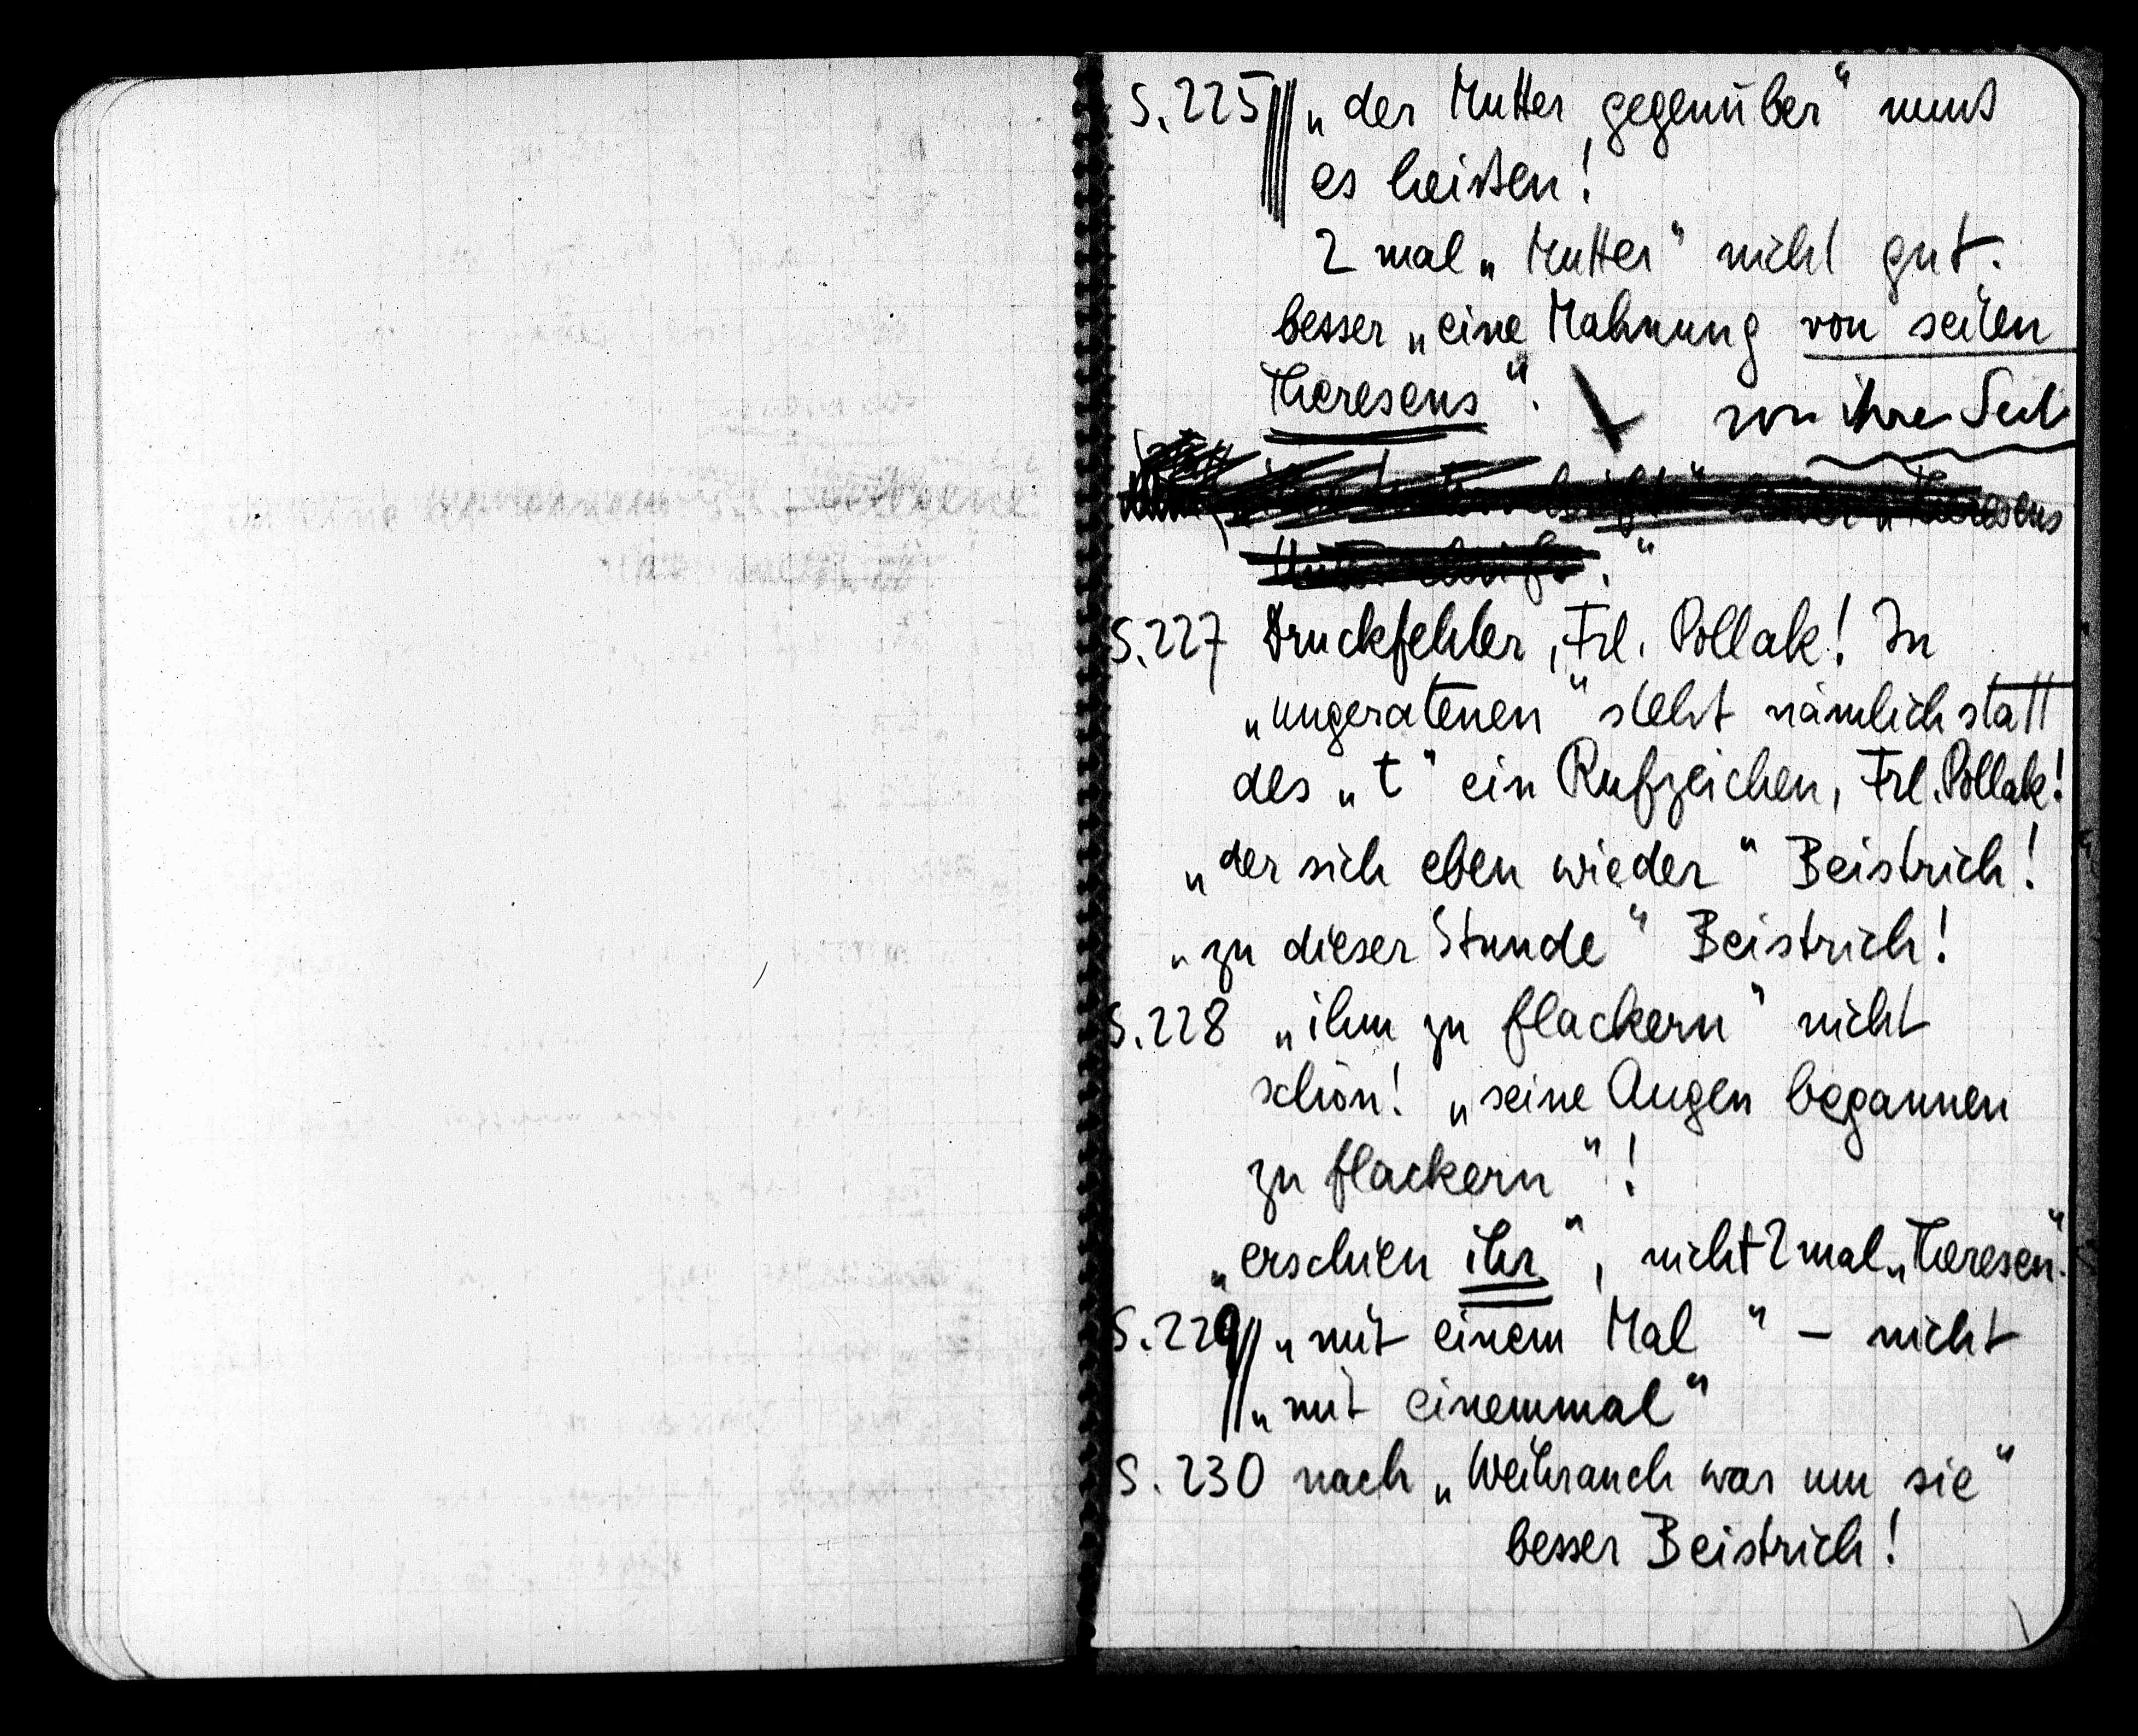 S. 225 „der Mutter gegenüber“ muß
es heißen!
2 mal „Mutter“ nicht gut.
besser „eine Mahnung von seiten
Theresens“.
von ihre Seit
Theresens
S. 227 Druckfehler, Frl. Pollak! In
„ungeratenen“ steht nämlich statt
des „t“ ein Rufzeichen, Frl. Pollak!
„der sich eben wieder“ Beistrich!
„zu dieser Stunde“ Beistrich!
S. 228 „ihm zu flackern“ nicht
schön! „seine Augen begannen
zu flackern“!
„erschien ihr“, nicht 2 mal „Theresen“.
S. 229 „mit einem Mal“ – nicht
„mit einemmal“
S. 230 nach „Weihrauch war um sie“
besser Beistrich!